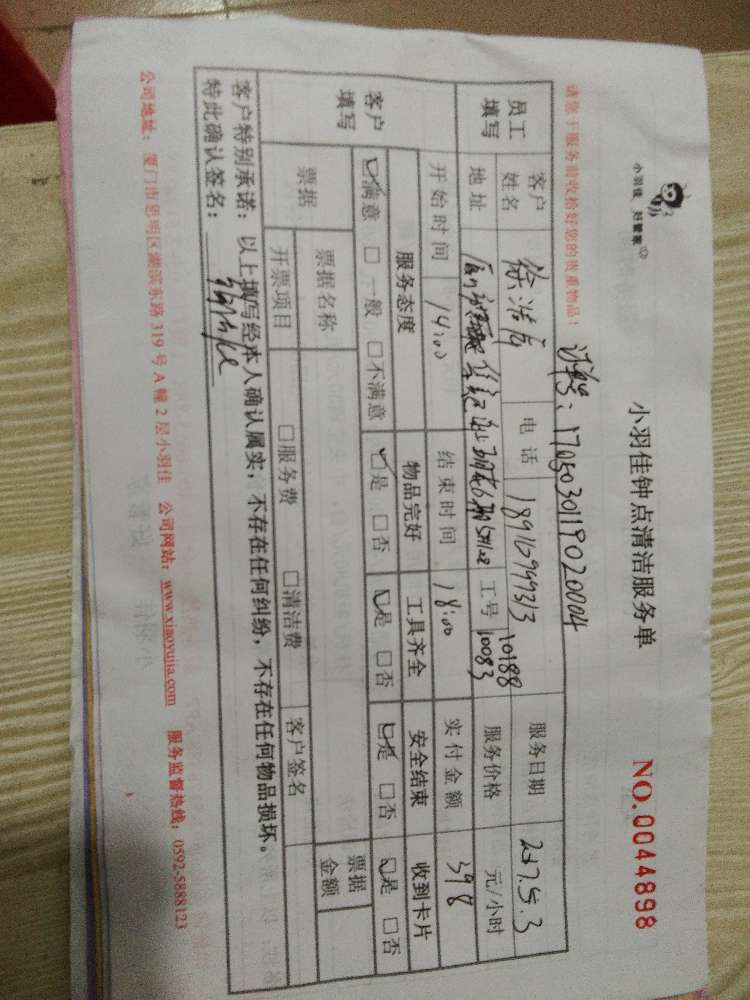 小羽佳 好管家
小羽佳钟点清洁服务单
NO.0044898
请您于服务前收拾好您的贵重物品！
订单号：1705030119020004
员工填写
客户姓名
电话 18911699313
服务日期 2017.5.3
地址
工号 10188 10083
服务价格 元/小时
客户填写
开始时间 14:00 结束时间 18:00 实付金额 398
服务态度 物品完好 工具齐全 安全结束 收到卡片
☑满意 □一般 □不满意 ☑是 □否 ☑是 □否 ☑是 □否 ☑是 □否
票据
票据名称
票据金额
开票项目 □服务费 □清洁费 客户签名
客户特别承诺：以上填写经本人确认属实，不存在任何纠纷，不存在任何物品损坏。
特此确认签名：
公司地址：厦门市思明区湖滨东路319号A幢2层小羽佳 公司网站：www.xiaoyujia.com 服务监督热线：0592-5888123